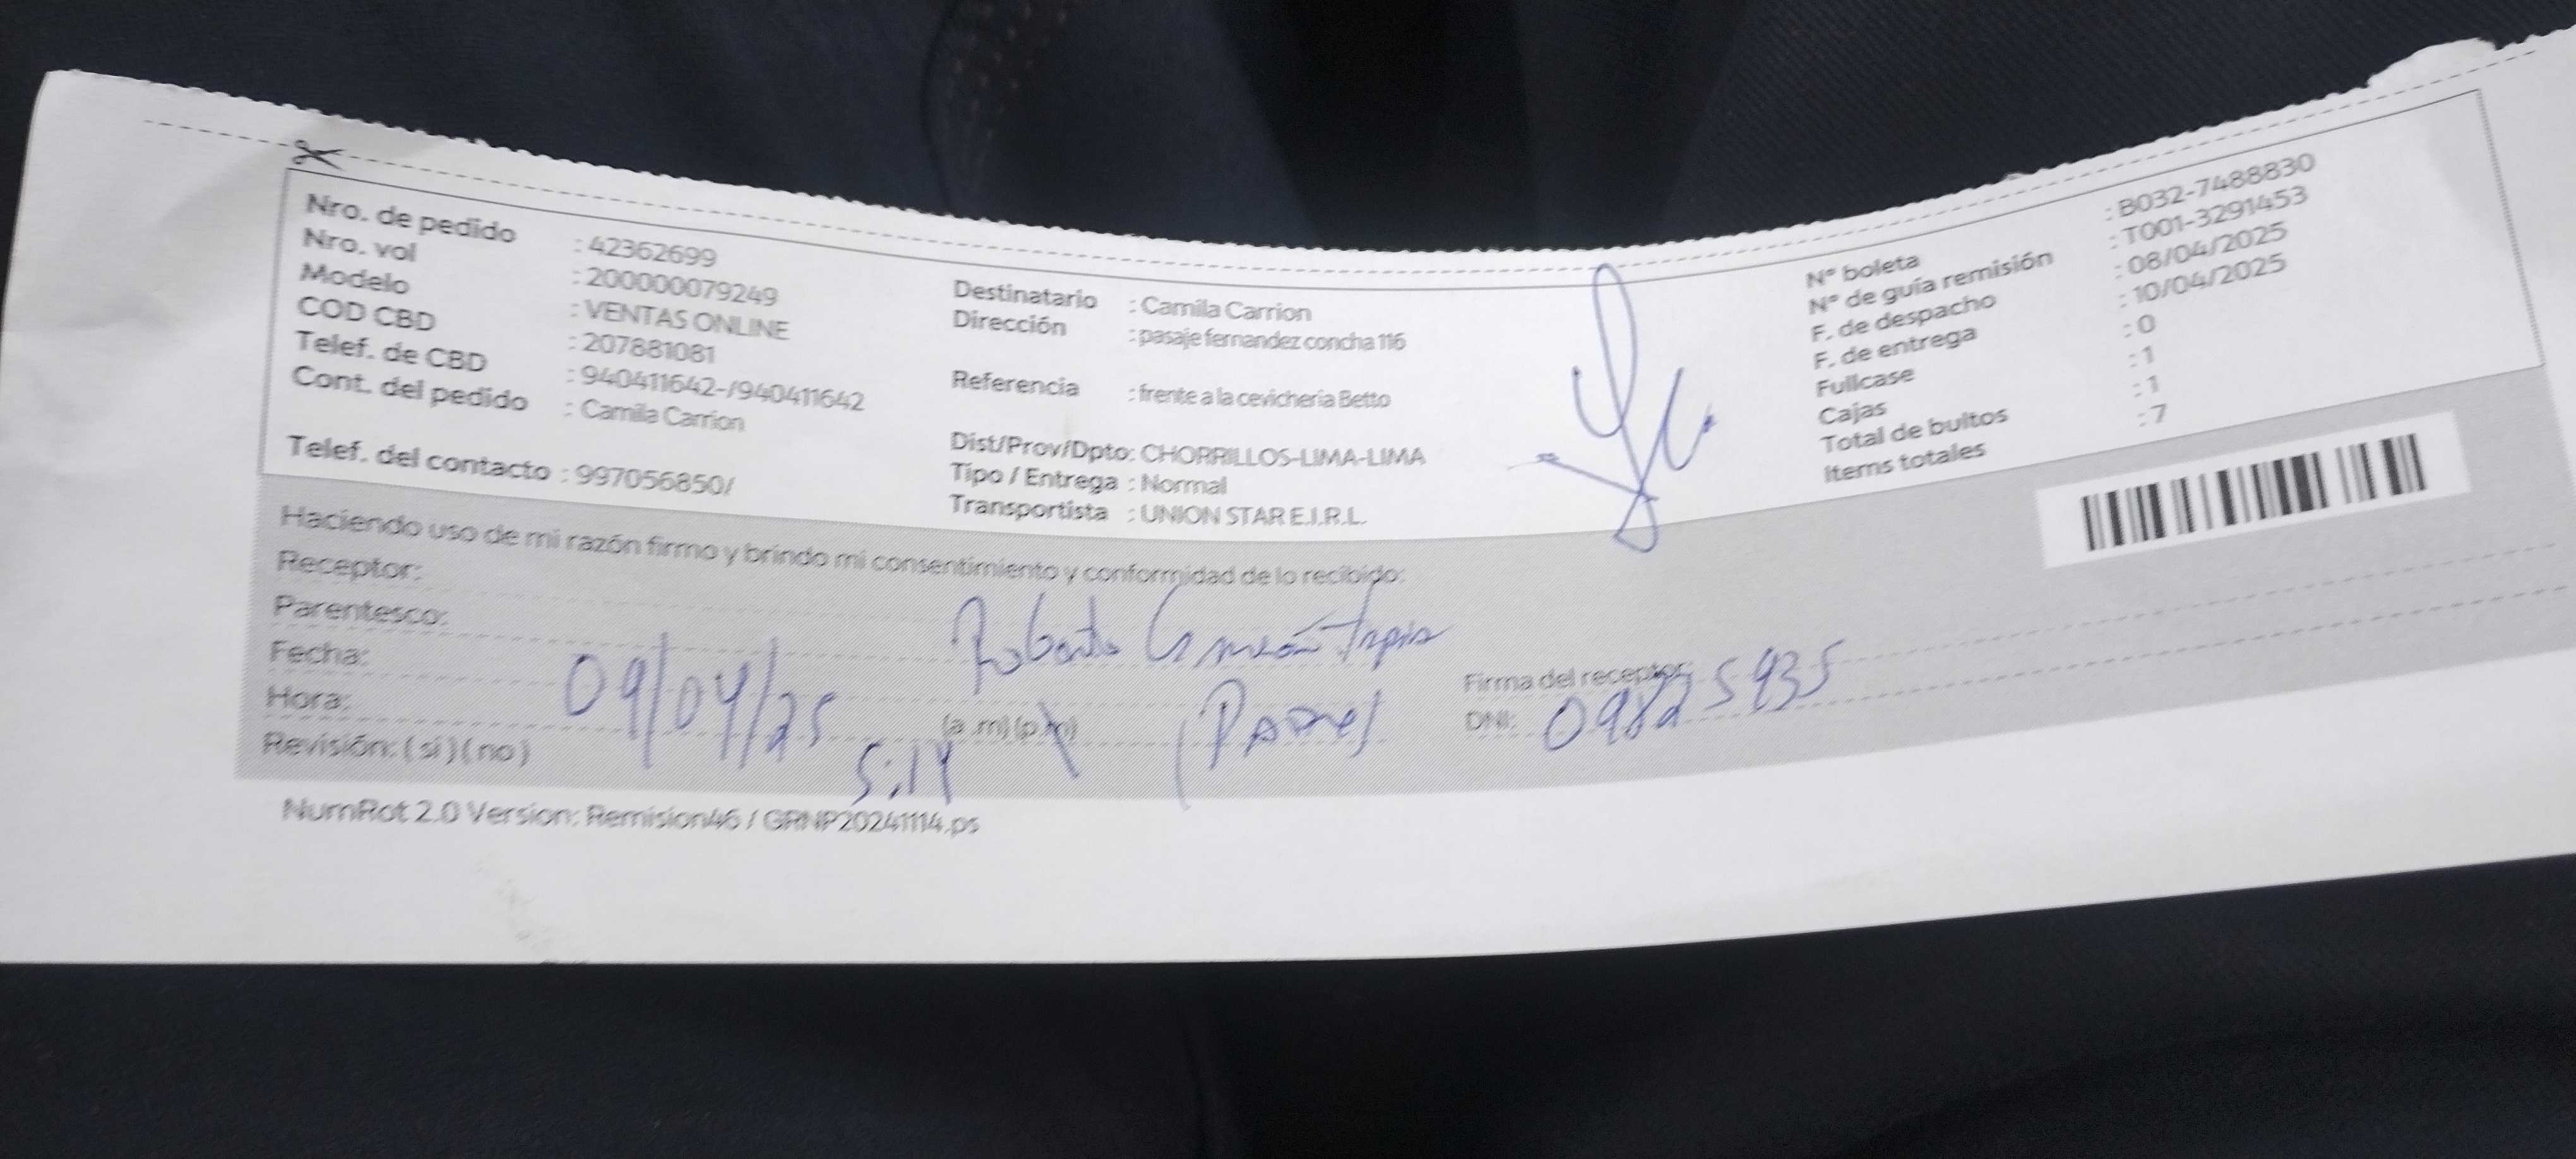 Nro. de pedido : 42362699
Nro. vol : 200000079249
Modelo : VENTAS ONLINE
COD CBD : 207881081
Telef. de CBD : 940411642-/940411642
Cont. del pedido : Camila Carrion
Telef. del contacto : 997056850/
Destinatario : Camila Carrion
Dirección : pasaje fernandez concha 116
Referencia : frente a la cevicheria Betto
Dist/Prov/Dpto: CHORRILLOS-LIMA-LIMA
Tipo / Entrega : Normal
Transportista : UNION STAR E.I.R.L.
N° boleta : B032-7488830
N° de guía remisión : T001-3291453
F. de despacho : 08/04/2025
F. de entrega : 10/04/2025
Fullcase : 0
Cajas : 1
Total de bultos : 1
Items totales : 7
Haciendo uso de mi razón firmo y brindo mi consentimiento y conformidad de lo recibido:
Receptor: Roberto Carrión Tapia
Parentesco: (Padre)
Fecha: 09/04/25
Hora: 5:14 (a.m) (p.m)
Revisión: ( si ) ( no )
Firma del receptor:
DNI: 09825935
NumRot 2.0 Version: Remision46 / GRNP20241114.ps